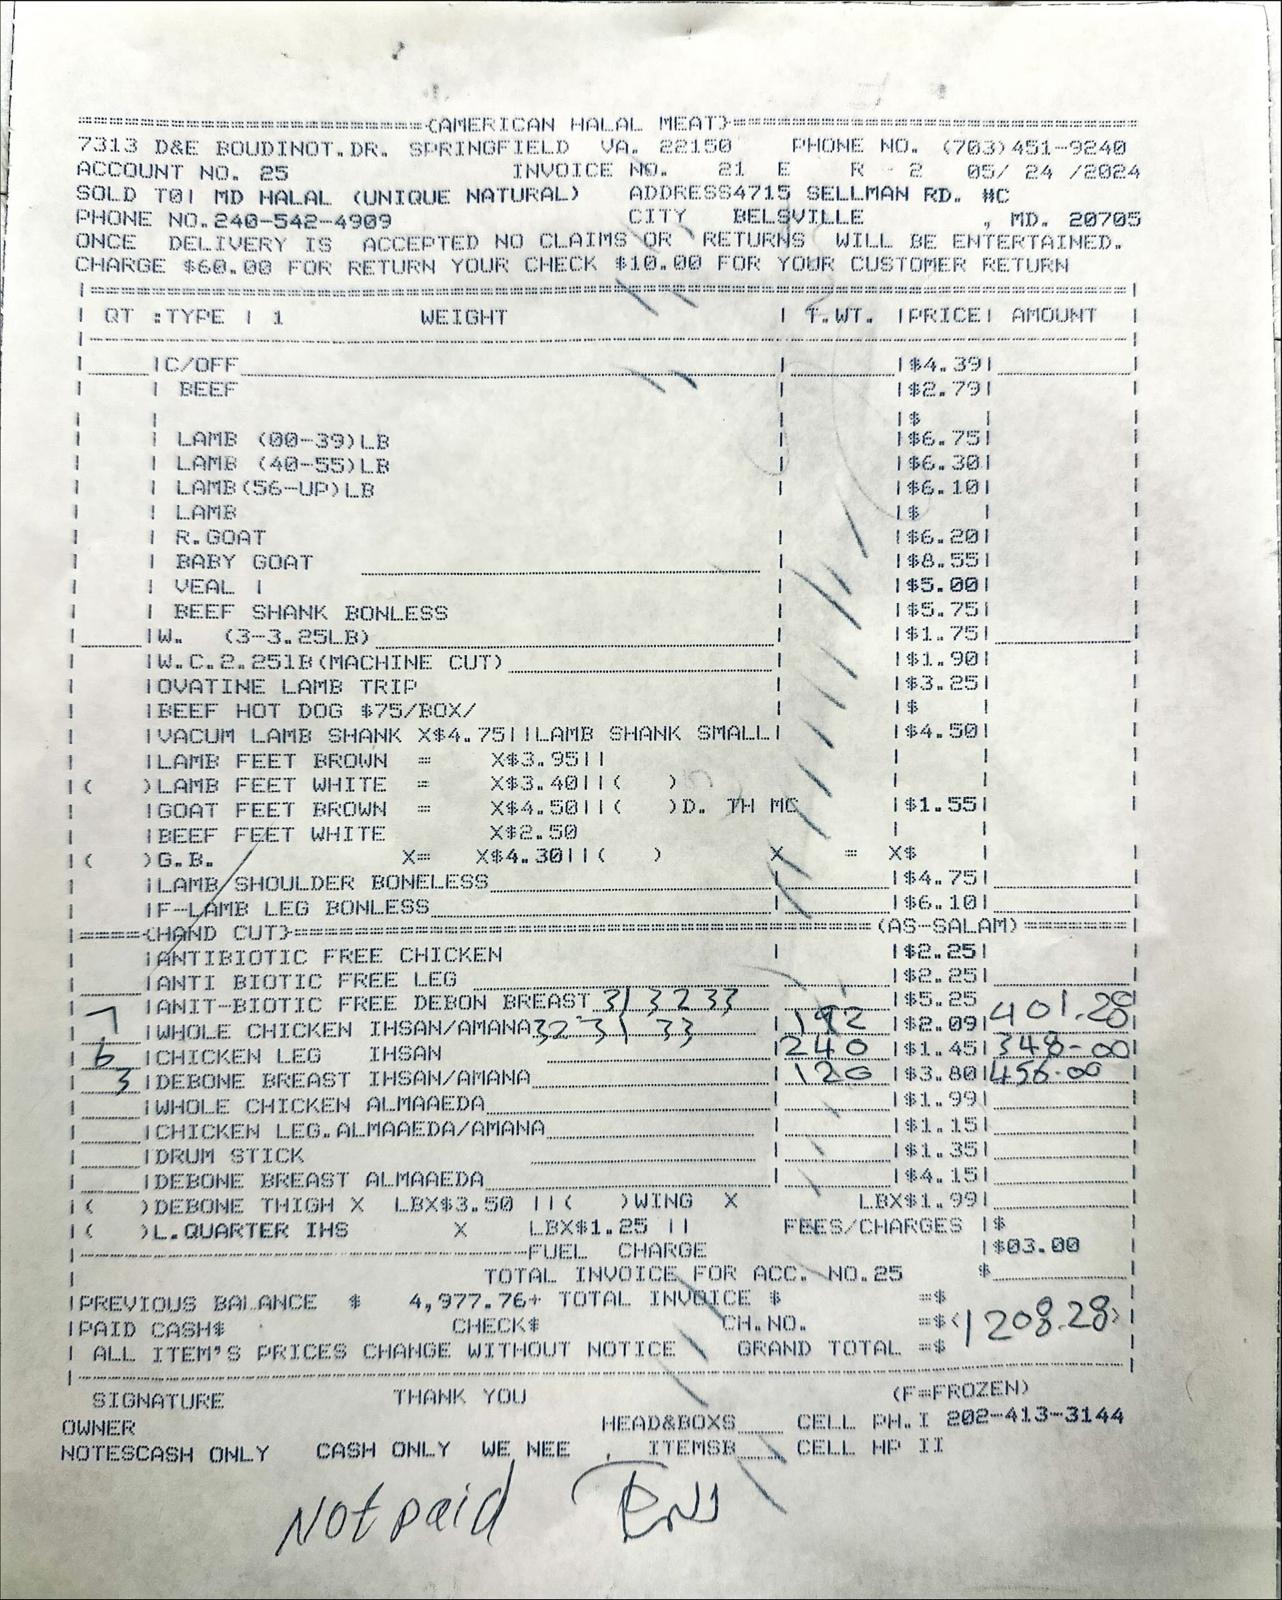 ==={AMERICAN HALAL MEAT}===
7313 D&E BOUDINOT.DR. SPRINGFIELD VA. 22150 PHONE NO. (703)451-9240
ACCOUNT NO. 25 INVOICE NO. 21 E R - 2 05/ 24 /2024
SOLD TO| MD HALAL (UNIQUE NATURAL) ADDRESS4715 SELLMAN RD. #C
PHONE NO.240-542-4909 CITY BELSVILLE , MD. 20705
ONCE DELIVERY IS ACCEPTED NO CLAIMS OR RETURNS WILL BE ENTERTAINED.
CHARGE $60.00 FOR RETURN YOUR CHECK $10.00 FOR YOUR CUSTOMER RETURN
| QT :TYPE | 1 WEIGHT | T.WT. |PRICE| AMOUNT |
|C/OFF |$4.39|
| BEEF |$2.79|
|$ |
| LAMB (00-39)LB |$6.75|
| LAMB (40-55)LB |$6.30|
| LAMB(56-UP)LB |$6.10|
| LAMB |$ |
| R.GOAT |$6.20|
| BABY GOAT |$8.55|
| VEAL | |$5.00|
| BEEF SHANK BONLESS |$5.75|
|W. (3-3.25LB) |$1.75|
|W.C.2.251B(MACHINE CUT) |$1.90|
|OVATINE LAMB TRIP |$3.25|
|BEEF HOT DOG $75/BOX/ |$ |
|VACUM LAMB SHANK X$4.75||LAMB SHANK SMALL| |$4.50|
|LAMB FEET BROWN = X$3.95||
|( )LAMB FEET WHITE = X$3.40||( )
|GOAT FEET BROWN = X$4.50||( )D. TH MC |$1.55|
|BEEF FEET WHITE X$2.50
|( )G.B. X= X$4.30||( ) X = X$ |
|LAMB SHOULDER BONELESS |$4.75|
|F-LAMB LEG BONLESS |$6.10|
|===={HAND CUT}===(AS-SALAM)===|
|ANTIBIOTIC FREE CHICKEN |$2.25|
|ANTI BIOTIC FREE LEG |$2.25|
|ANIT-BIOTIC FREE DEBON BREAST 31 32 33 |$5.25
7 |WHOLE CHICKEN IHSAN/AMANA 32 31 33 | 192 |$2.09| 401.28
6 |CHICKEN LEG IHSAN | 240 |$1.45| 348-00
3 |DEBONE BREAST IHSAN/AMANA | 120 |$3.80| 456.00
|WHOLE CHICKEN ALMAAEDA |$1.99|
|CHICKEN LEG.ALMAAEDA/AMANA |$1.15|
|DRUM STICK |$1.35|
|DEBONE BREAST ALMAAEDA |$4.15|
|( )DEBONE THIGH X LBX$3.50 ||( )WING X LBX$1.99|
|( )L.QUARTER IHS X LBX$1.25 || FEES/CHARGES |$
FUEL CHARGE |$03.00
TOTAL INVOICE FOR ACC. NO.25 $
|PREVIOUS BALANCE $ 4,977.76+ TOTAL INVOICE $ =$
|PAID CASH$ CHECK$ CH.NO. =$< 1208.28>
| ALL ITEM'S PRICES CHANGE WITHOUT NOTICE GRAND TOTAL =$
SIGNATURE THANK YOU (F=FROZEN)
OWNER HEAD&BOXS____ CELL PH.I 202-413-3144
NOTESCASH ONLY CASH ONLY WE NEE , ITEMSB____ CELL HP II
Not paid